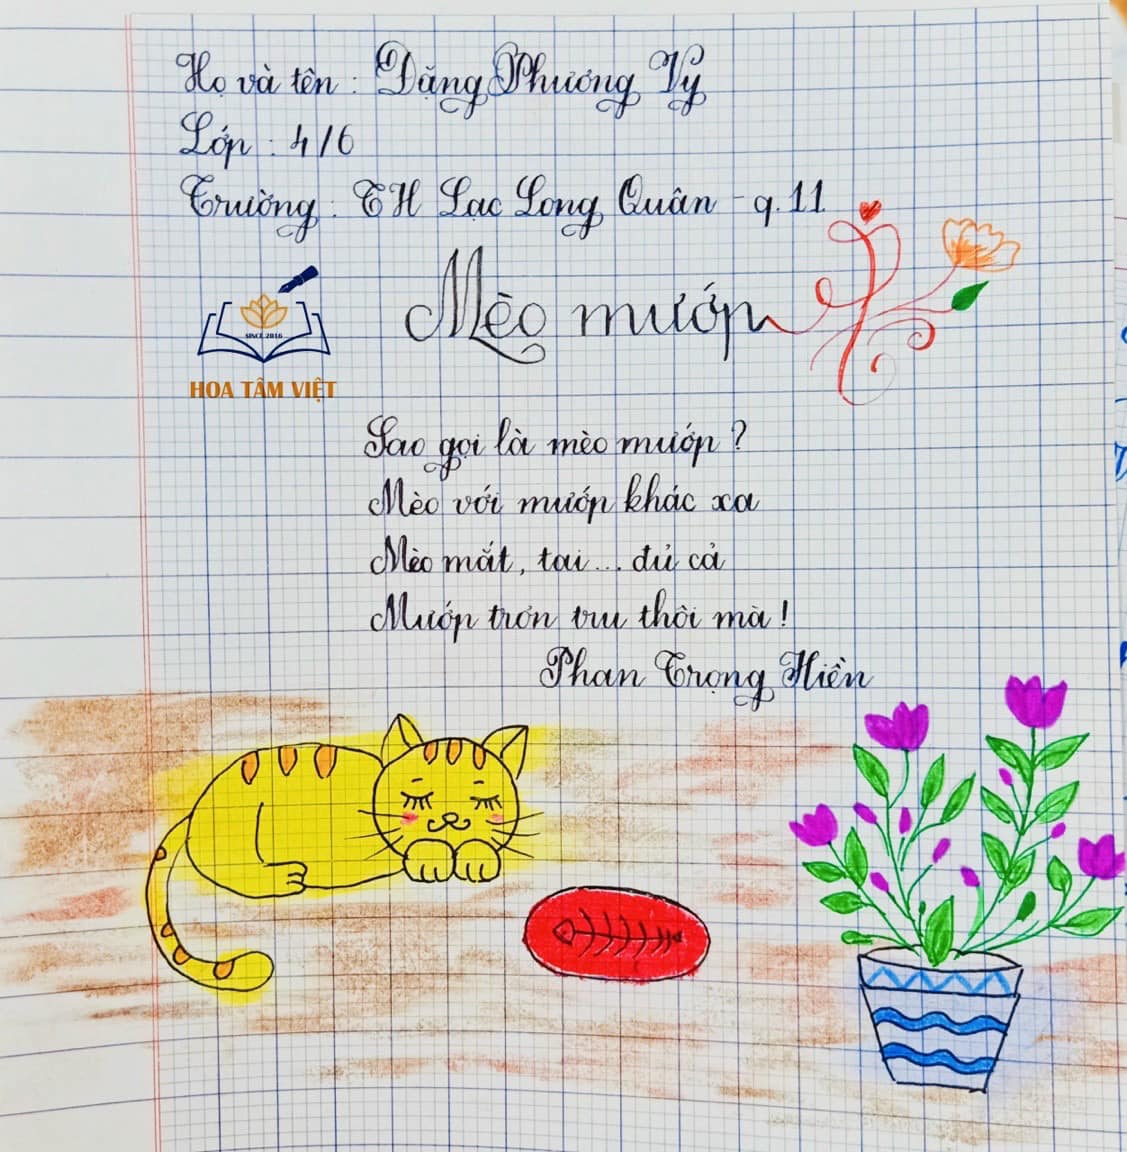 Họ và tên : Đặng Phương Vy
Lớp : 4/6
Trường : TH Lạc Long Quân - q. 11
SINCE 2016
HOA TÂM VIỆT
Mèo mướp
Sao gọi là mèo mướp ?
Mèo với mướp khác xa
Mèo mắt, tai... đủ cả
Mướp trơn tru thôi mà !
Phan Trọng Hiền